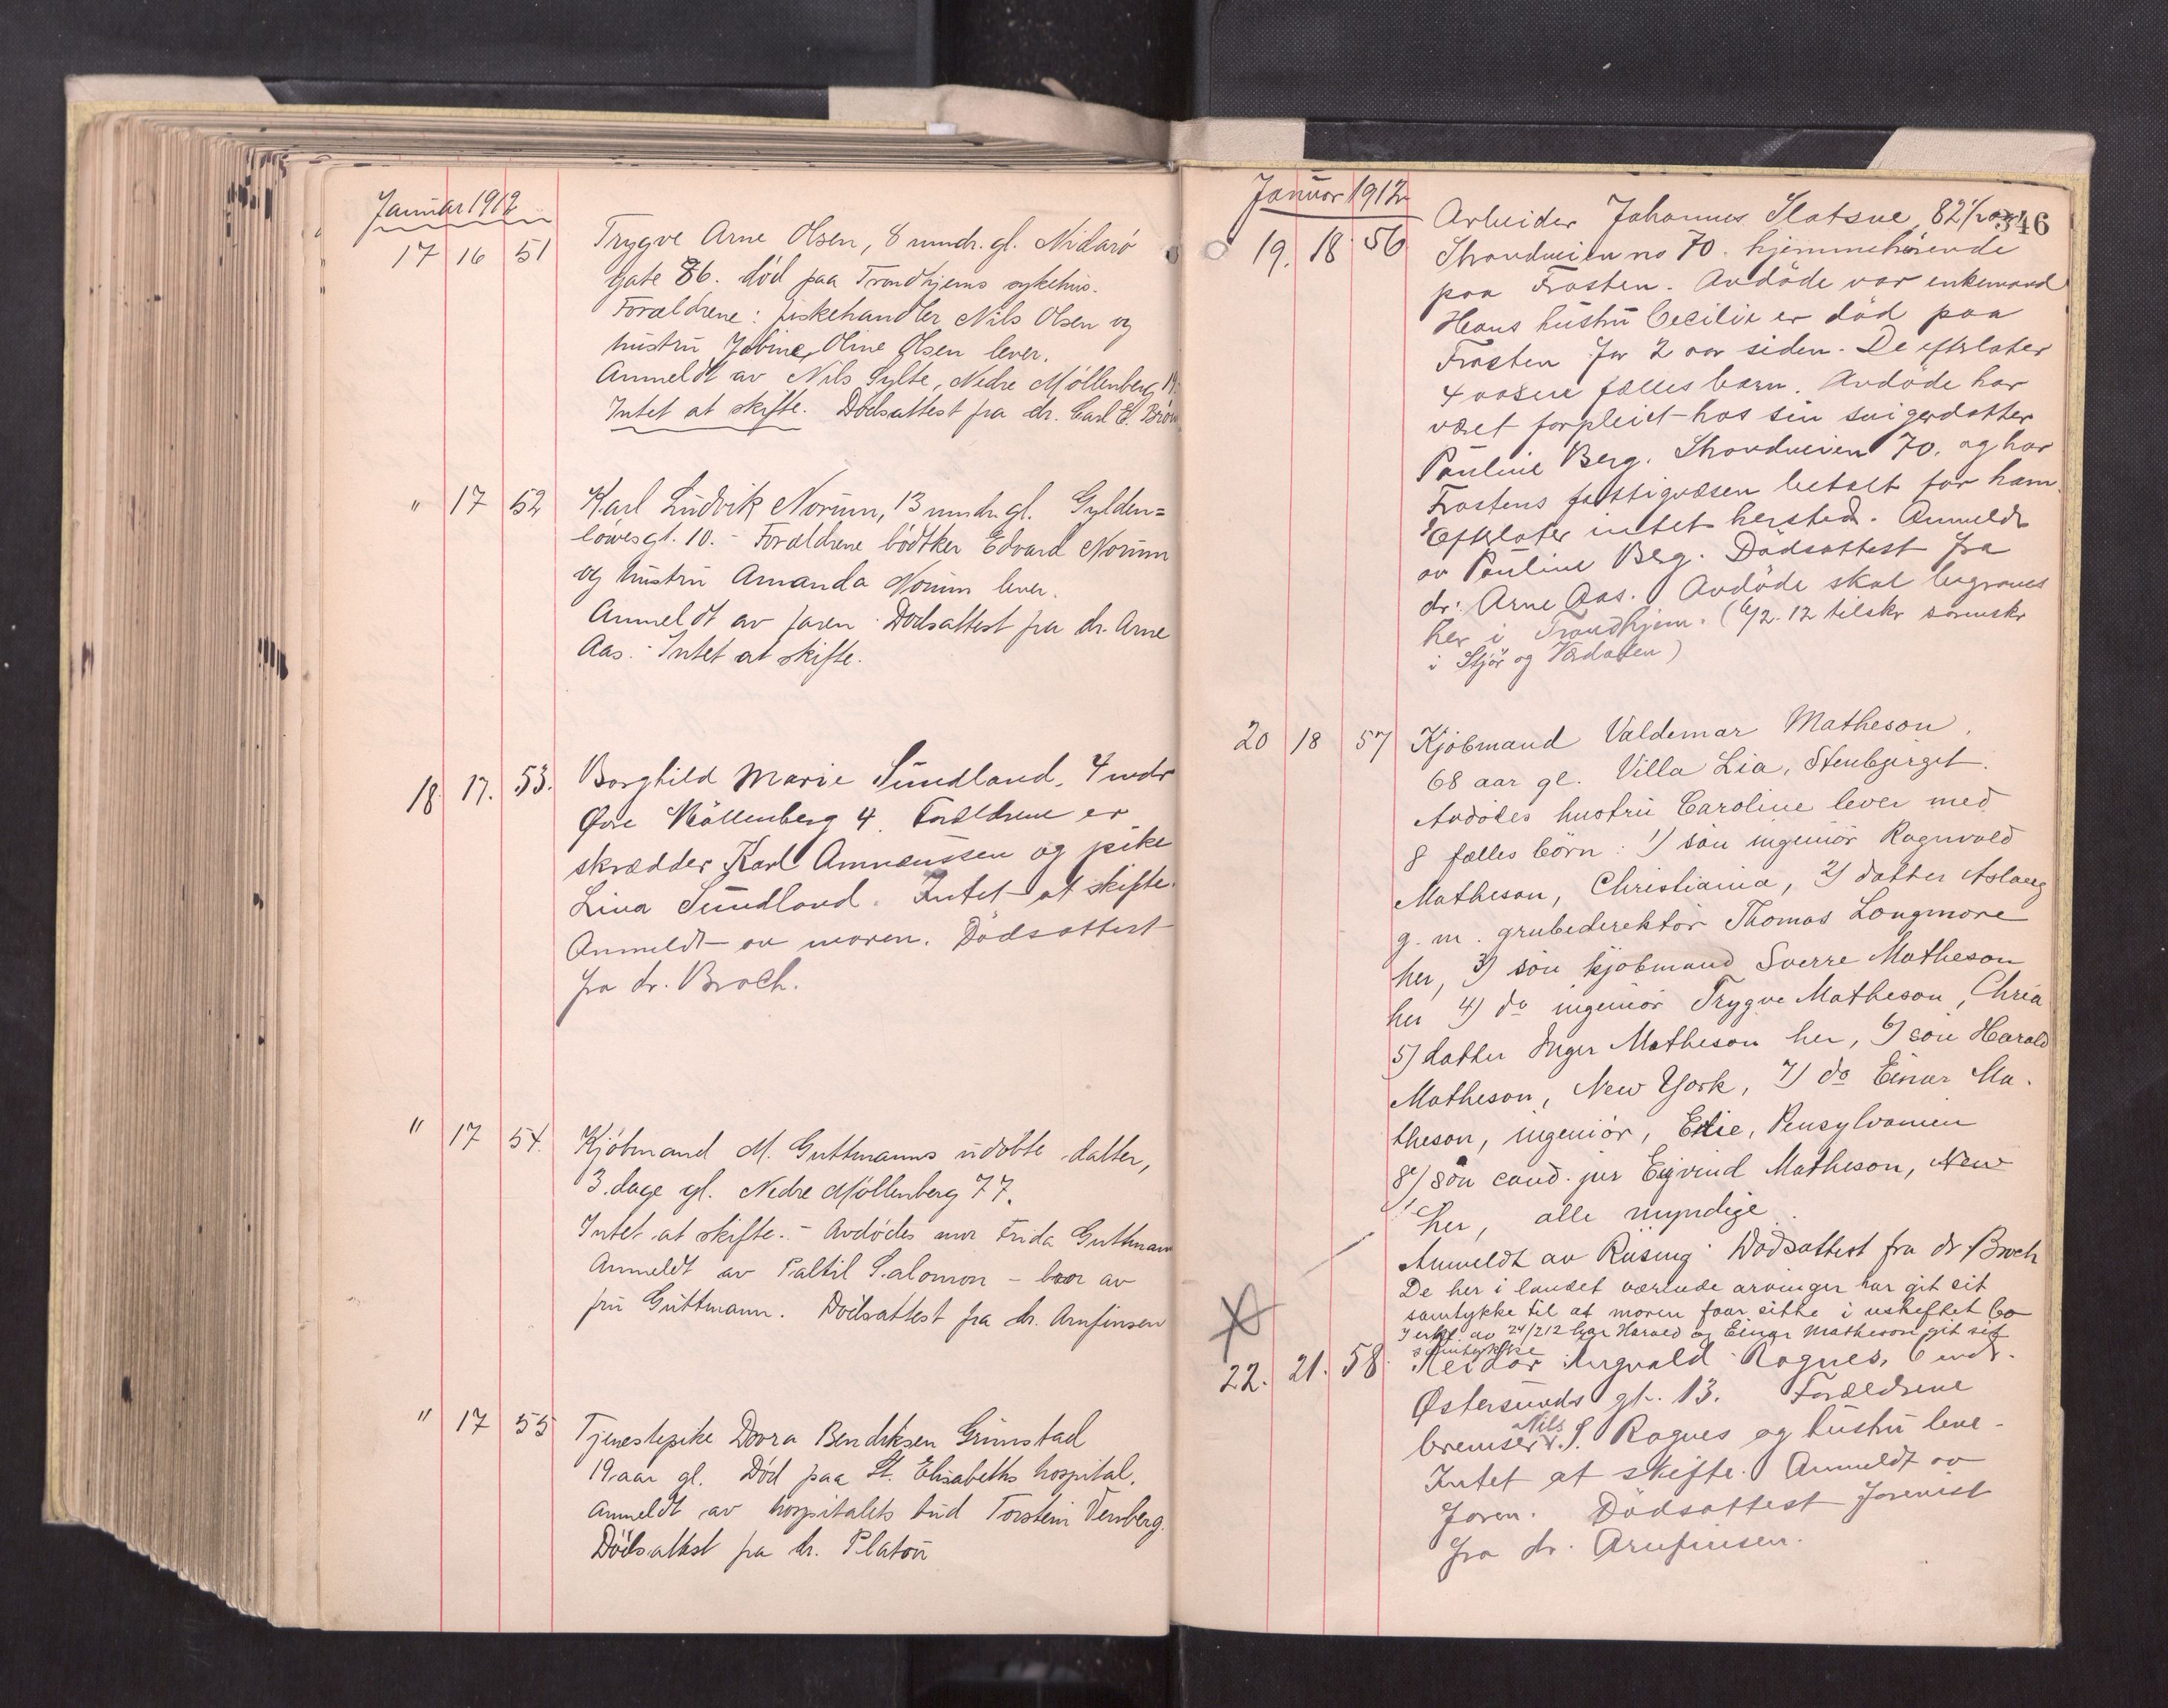 Januar 1912
17 16 51 Trygve Arne Olsen, 8 mndr. gl. Nidarö
gate 86. död paa Trondhjems sykehus.
Foræeldrene: fiskehandler Nils Olsen og
hustru Jobine Oline Olsen lever.
Anmeldt av Nils Sylte, Nedre Möllenberg
Intet at skifte. Dödsattest fra dr. Carl E.
" 17 52 Karl Ludvik Norum, 13 mndr. gl. Gylden=
löwesgt. 10. - Forældrene bödtker Edvard Norum
og hustru Amanda Norum lever.
Anmeldt av faren. Dödsattest fra dr. Arne
Aas. - Intet at skifte.
18. 17. 53. Borghild Marie Sundland, 4 mdr
Øvre Möllenberg 4. Forældrene er
skrædder Karl Amneussen og pike
Lina Sundland. Intet at skifte.
Anmeldt av moren. Dödsattest
fra dr. Broch.
" 17 54. Kjöbmand M. Guttmanns udöbte datter,
3 dage gl. Nedre Möllenberg 77.
Intet at skifte. - Avdödes mor Frida Guttmann
Anmeldt av Paltil Salomon - bror av
fru Guttmann. Dödsattest fra dr. Arnfinsen
" 17 55 Tjenestepike Dovra Bendiksen Grimstad
19 aar gl. Död paa St. Elisabeths hospital.
Anmeldt av hospitalets bud Torstein Vernberg.
Dödsattest fra dr. Platou
Januar 1912
346
19. 18 56 Arbeider Johannes Slatsve, 82 1/2 aar
Strandveien no 70. hjemmehörende
paa Frosten. Avdöde var enkemand
Hans hustru Cecilie er död paa
Frosten for 2 aar siden. De efterlater
4 voksne fælles barn. Avdöde har
været forpleiet hos sin svigerdatter
Pauline Berg. Strandveien 70. og har
Frostens fattigvæsen betalt for ham.
Efterlater intet hersteds. Anmeldt
av Pauline Berg. Dödsattest fra
dr. Arne Aas. Avdöde skal begraves
her i Trondhjem. (6/2. 12 tilskr sorenskr
i Stjör og Værdalen)
20 18 57 Kjöbmand Valdemar Matheson.
68 aar gl. Villa Lia, Stenbjerget.
Avdödes hustru Caroline lever med
8 fælles börn: 1) sön ingeniör Ragnvald
Matheson, Christiania, 2) datter Aslaug
g. m. grubedirektör Thomas Longmore
her, 3) sön kjöbmand Sverre Matheson
her 4) do ingeniör Trygve Matheson, Chria
5) datter Inger Matheson her, 6) sön Harald
Matheson, New York, 7) do Einar Ma-
theson, ingeniör, Erie, Pensylvanien
8) sön cand. jur Eyvind Matheson, New
her, alle myndige.
Anmeldt av Rüsing. Dödsattest fra dr Broch
De her i landet værende arvinger har git sit
samtykke til at moren faar sitte i uskiftet bo
I erkl. av 24/2 12 har Harald og Einar Matheson git sit
samtykke
22. 21. 58. Reidar Ingvald Rognes, 6 mdr.
Østersunds gt. 13. Forældrene
bremser Nils J. Rognes og hustru leve.
Intet at skifte. Anmeldt av
faren. Dödsattest forevist
fra dr. Arnfinsen.